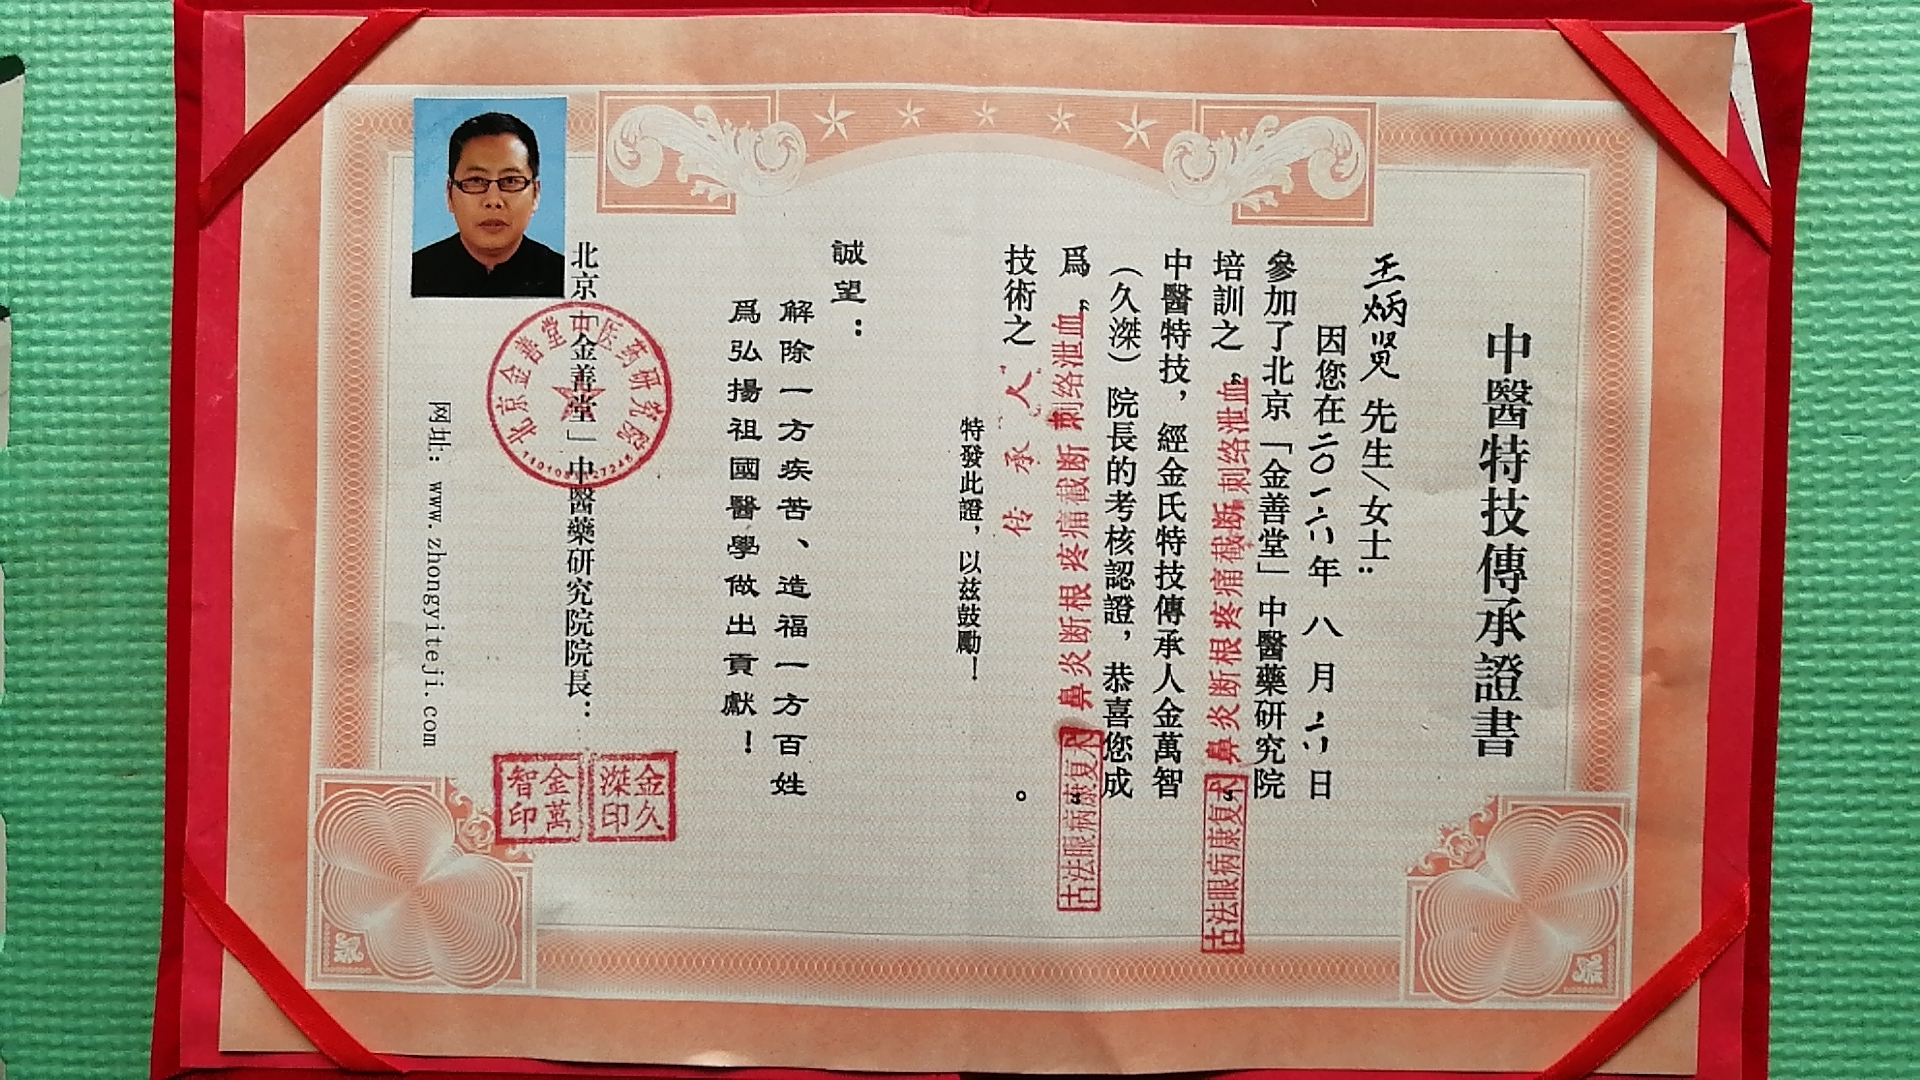 中醫特技傳承證書
王炳贤 先生/女士:
因您在二〇一六年 八 月 六 日
參加了北京「金善堂」中醫藥研究院
培訓之“刺络泄血 疼痛截断 鼻炎断根 古法眼病康复术”
中醫特技，經金氏特技傳承人金萬智
（久滐）院長的考核認證，恭喜您成
爲“刺络泄血 疼痛截断 鼻炎断根 古法眼病康复术”
技術之“传承人”。
特發此證，以兹鼓勵！
誠望：
解除一方疾苦、造福一方百姓
爲弘揚祖國醫學做出貢獻！
北京「金善堂」中醫藥研究院院長：
北京金善堂中医药研究院
金久滐印
金萬智印
网址: www.zhongyiteji.com